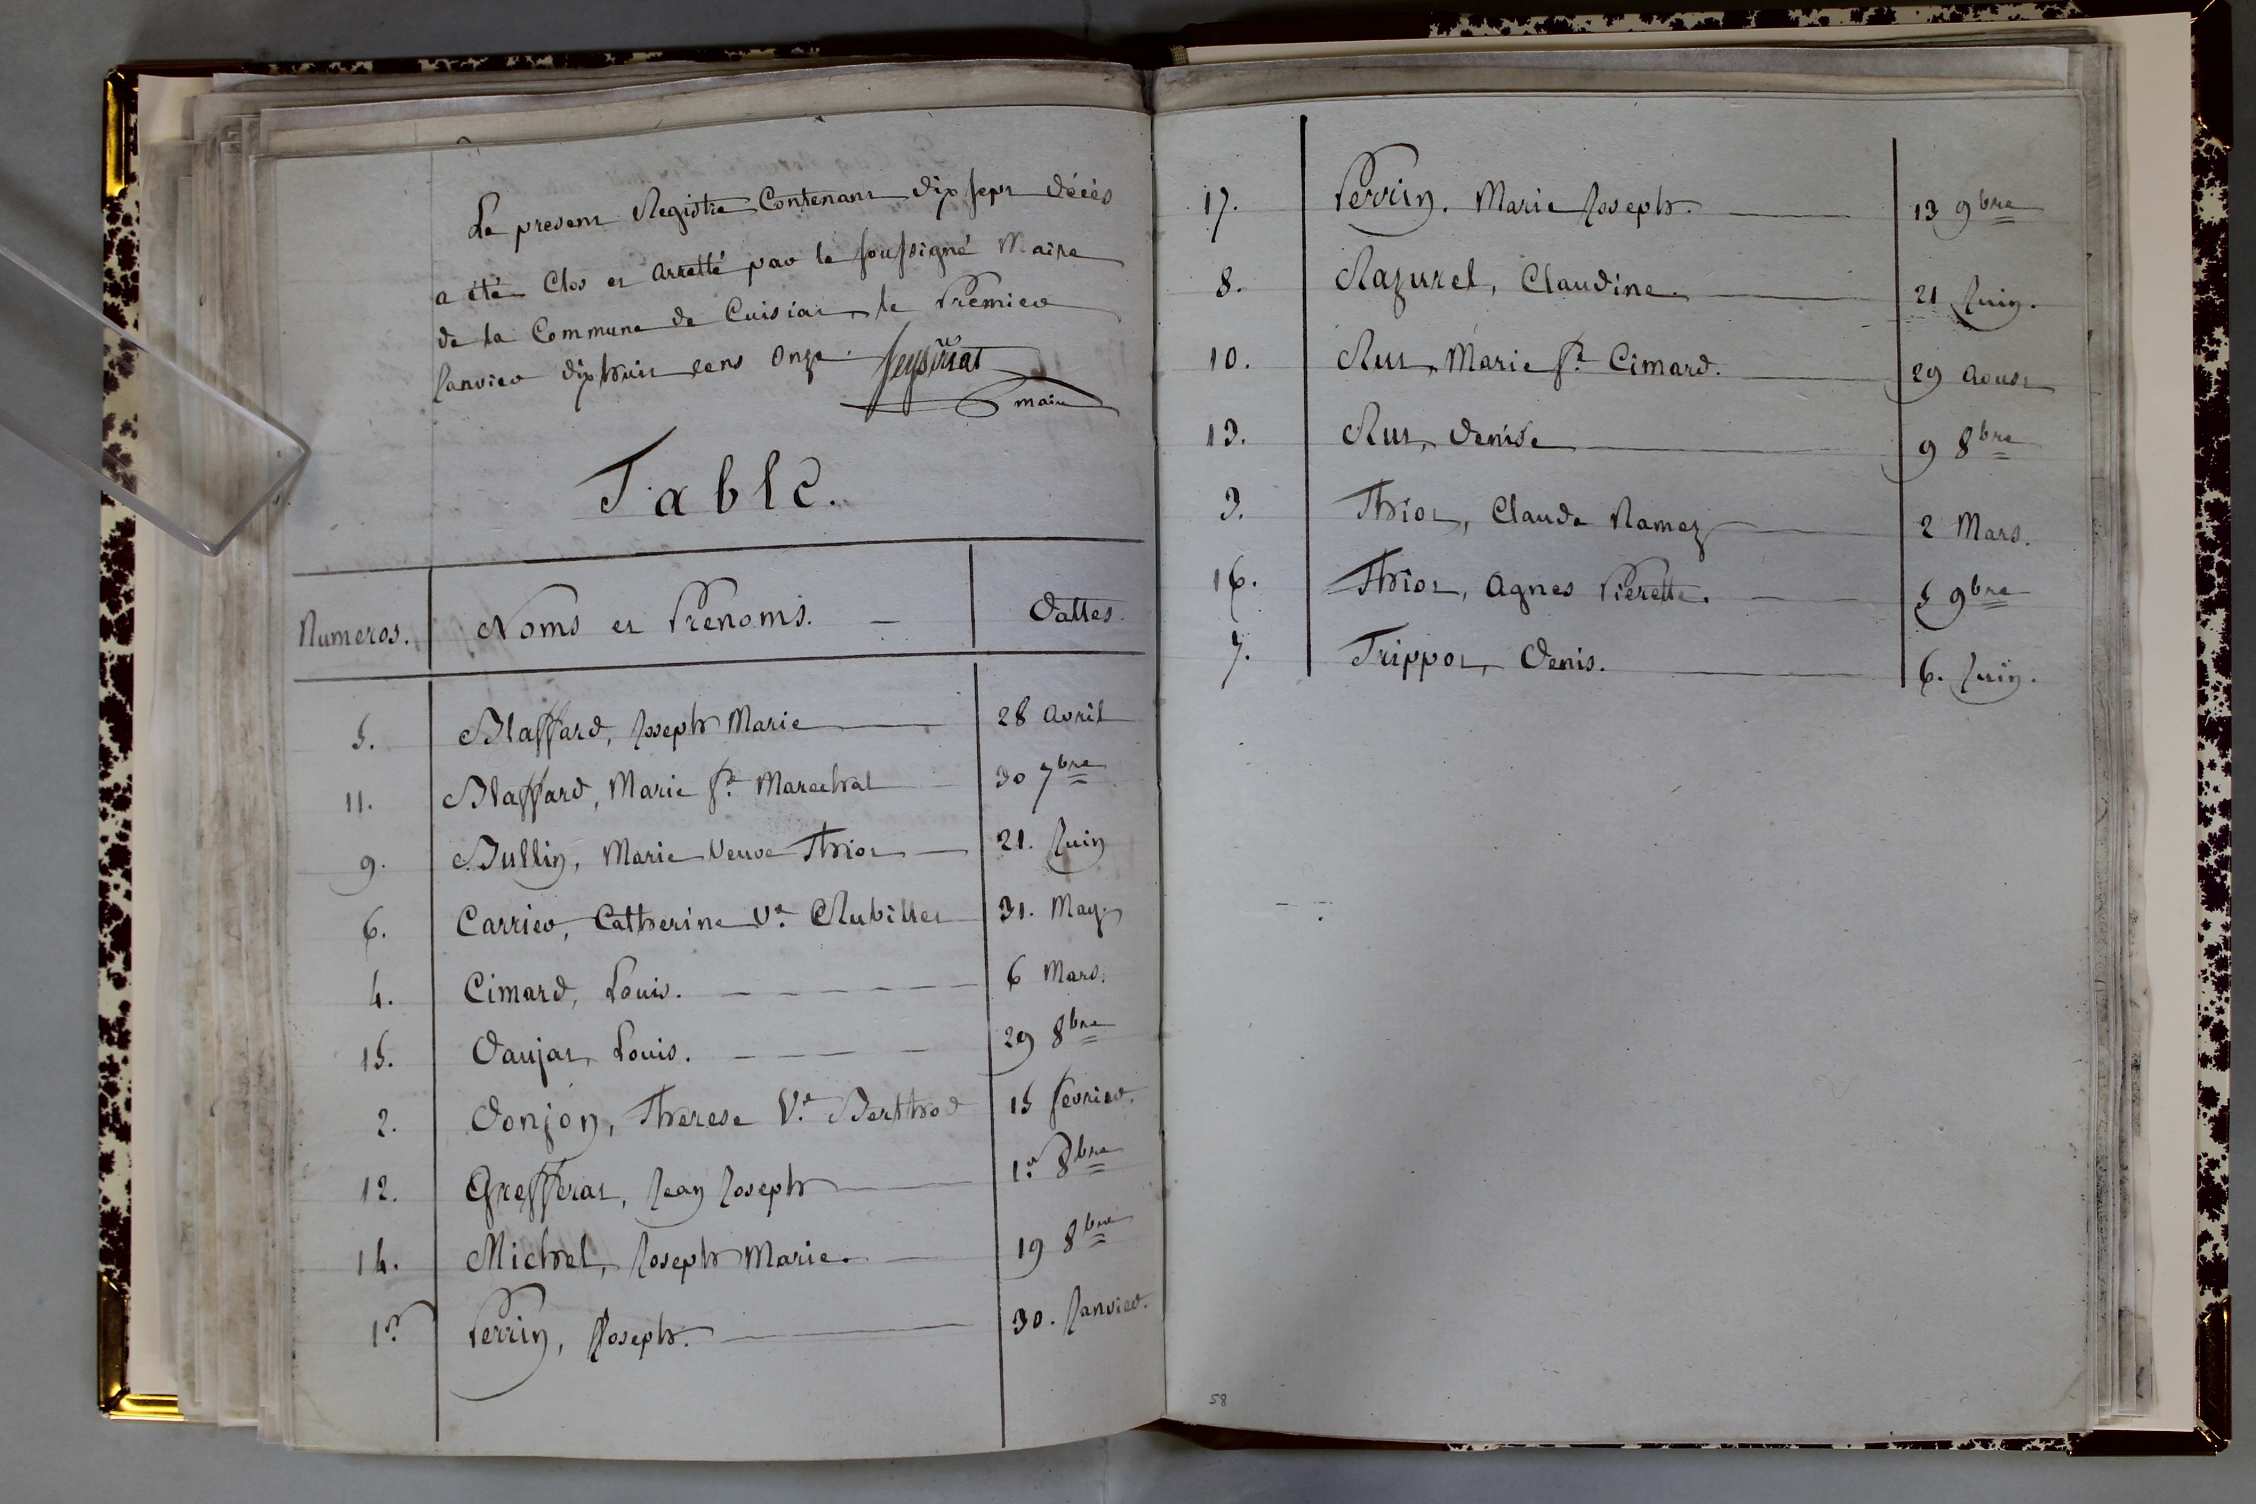 Le present Registre Contenant dix sept décès
a été Clos et arretté par le soussigné Maire
de la Commune de Cuisiat, le Premier
Janvier dix huit cens onze.
maire
Table.
Numeros. Noms et Prenoms. Dattes.
5. Blaffard, Joseph Marie 28 avril
11. Blaffard, Marie fe. Marechal 30 7bre
9. Bullin, Marie Veuve Thiot 21. Juin
6. Carrier, Catherine Ve. Rubillet 31. May
4. Cimard, Louis. 6 Mars.
15. Daujat, Louis. 29 8bre
2. Donjon, Therese Ve. Berthod 15 fevrier.
12. Grefferat, Jean Joseph 1er 8bre
14. Michel, Joseph Marie. 19 8bre
1er Perrin, Joseph. 30. Janvier.
17. Perrin. Marie Joseph. 13 9bre
8. Razurel, Claudine. 21 Juin.
10. Rut, Marie fe. Cimard. 29 aoust
13. Rut, denise 9 8bre
3. Thiot, Claude Ramez 2 Mars.
16. Thiot, agnes Pierette. 5 9bre
7. Trippot, Denis. 6. Juin.
58